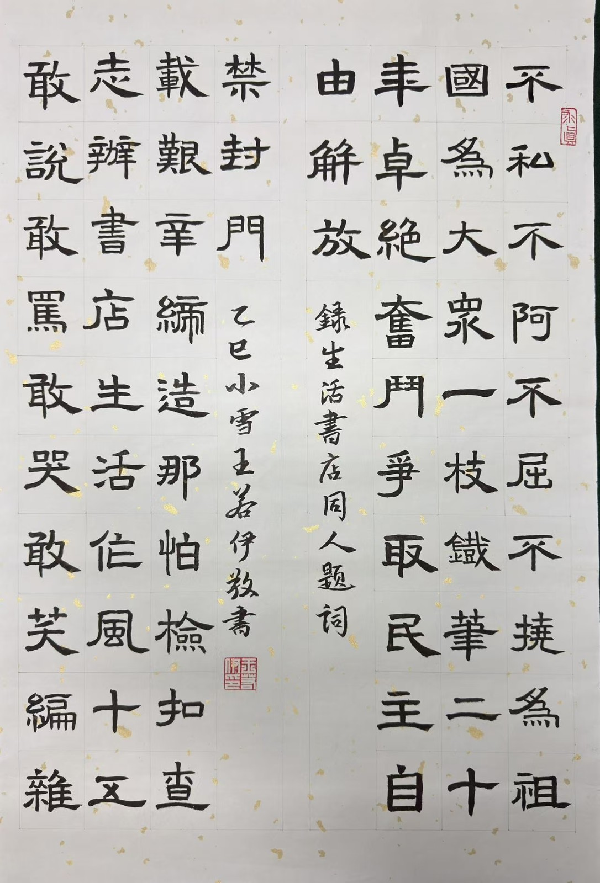 不私不阿不屈不撓為祖
國為大眾一枝鐵筆二十
年卓絕奮鬥爭取民主自
由解放
錄生活書店同人題詞
敢說敢罵敢哭敢笑編雜
志辦書店生活作風十五
載艱辛締造那怕檢扣查
禁封門
乙巳小雪王若伊敬書